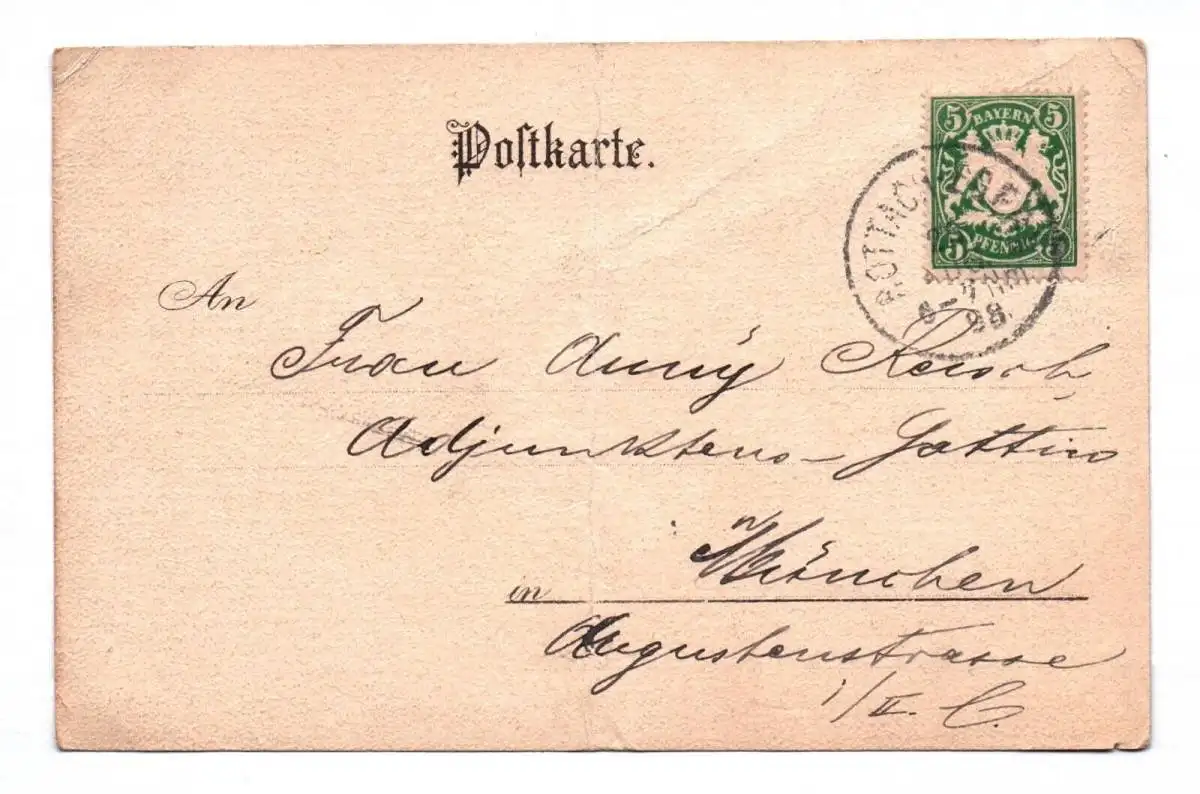 Postkarte.
5 BAYERN 5
5 PFENNIG 5
ROTTACH
98.
An
Frau Anny
Adjunktens-Gattin
in München
Augustenstrasse
1/II. C.